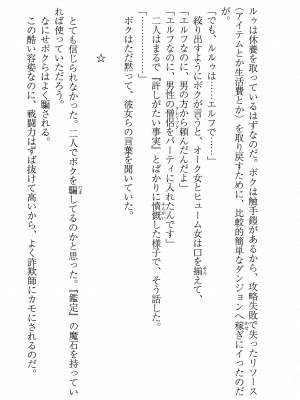 ルゥは休養を取っているはずなのだ。ボクは触手鎧があるから、攻略失敗で失ったリソース
（アイテムとか生活費とか）を取り戻すために、比較的簡単なダンジョンへ稼ぎにイッたのだ
が。
「でも、ルルゥは……エルフで……」
絞り出すようにボクが言うと、オーク女とヒューム女は口を揃えて、
「エルフなのに、男の方から頼んだんだよ」
「エルフなのに、男性の僧侶をパーティに入れたんです」
二人はまるで『許しがたい事実』とばかりに憤慨した様子で、そう話した。
「…………………」
ボクはただ黙って、彼女らの言葉を聞いていた。
☆
とても信じられなかった。二人でボクを騙してるのかと思った。『鑑定』の魔石を持ってい
れば使っていただろう。
なにせボクらはよく騙される。
この酷い容姿なのに、戦闘力はずば抜けて高いから、よく詐欺師にカモにされるのだ。